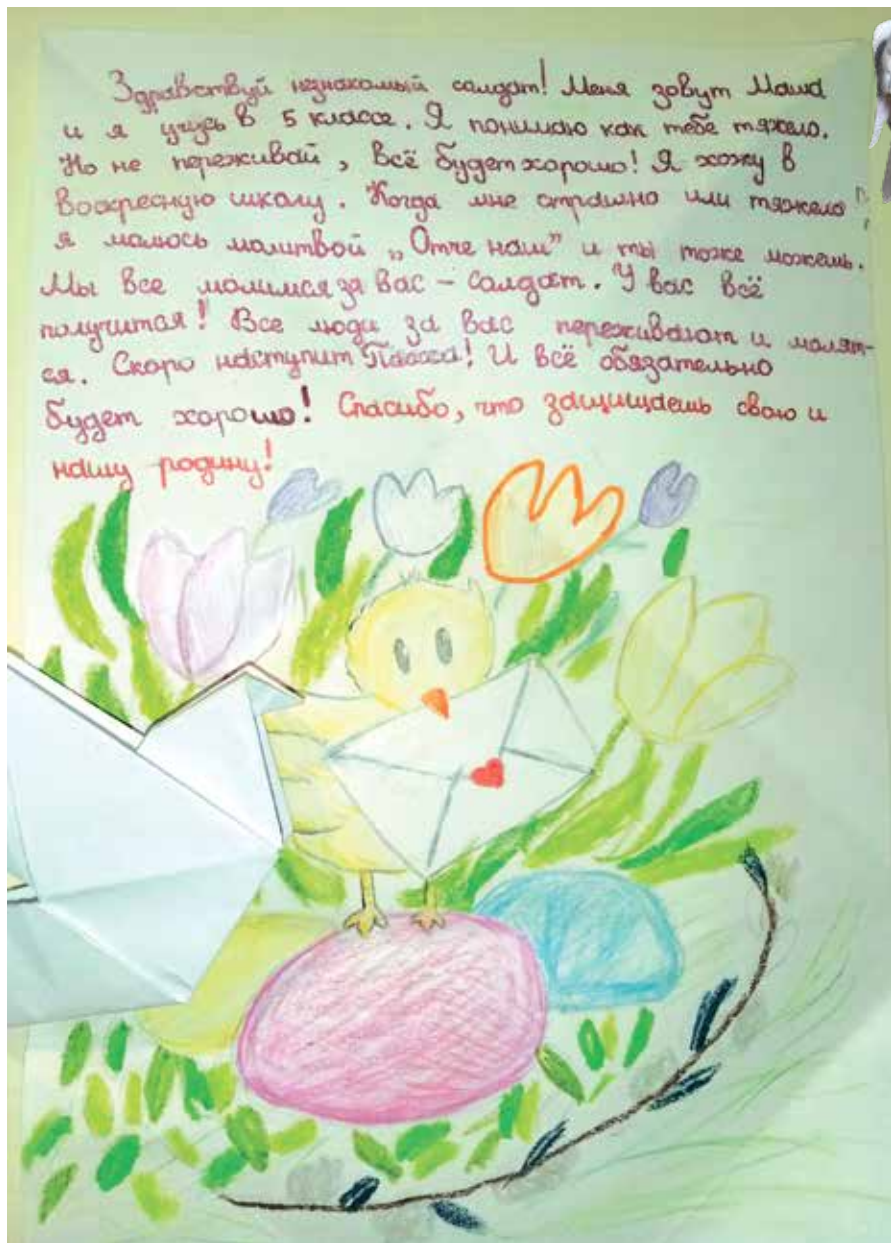 Здравствуй незнакомый солдат! Меня зовут Маша
и я учусь в 5 классе. Я понимаю как тебе тяжело.
Но не переживай, всё будет хорошо! Я хожу в
Воскресную школу. Когда мне страшно или тяжело
я молюсь молитвой „Отче наш” и ты тоже можешь.
Мы все молимся за вас – солдат. У вас всё
получится! Все люди за вас переживают и молят-
ся. Скоро наступит Пасха! И всё обязательно
будет хорошо! Спасибо, что защищаешь свою и
нашу родину!